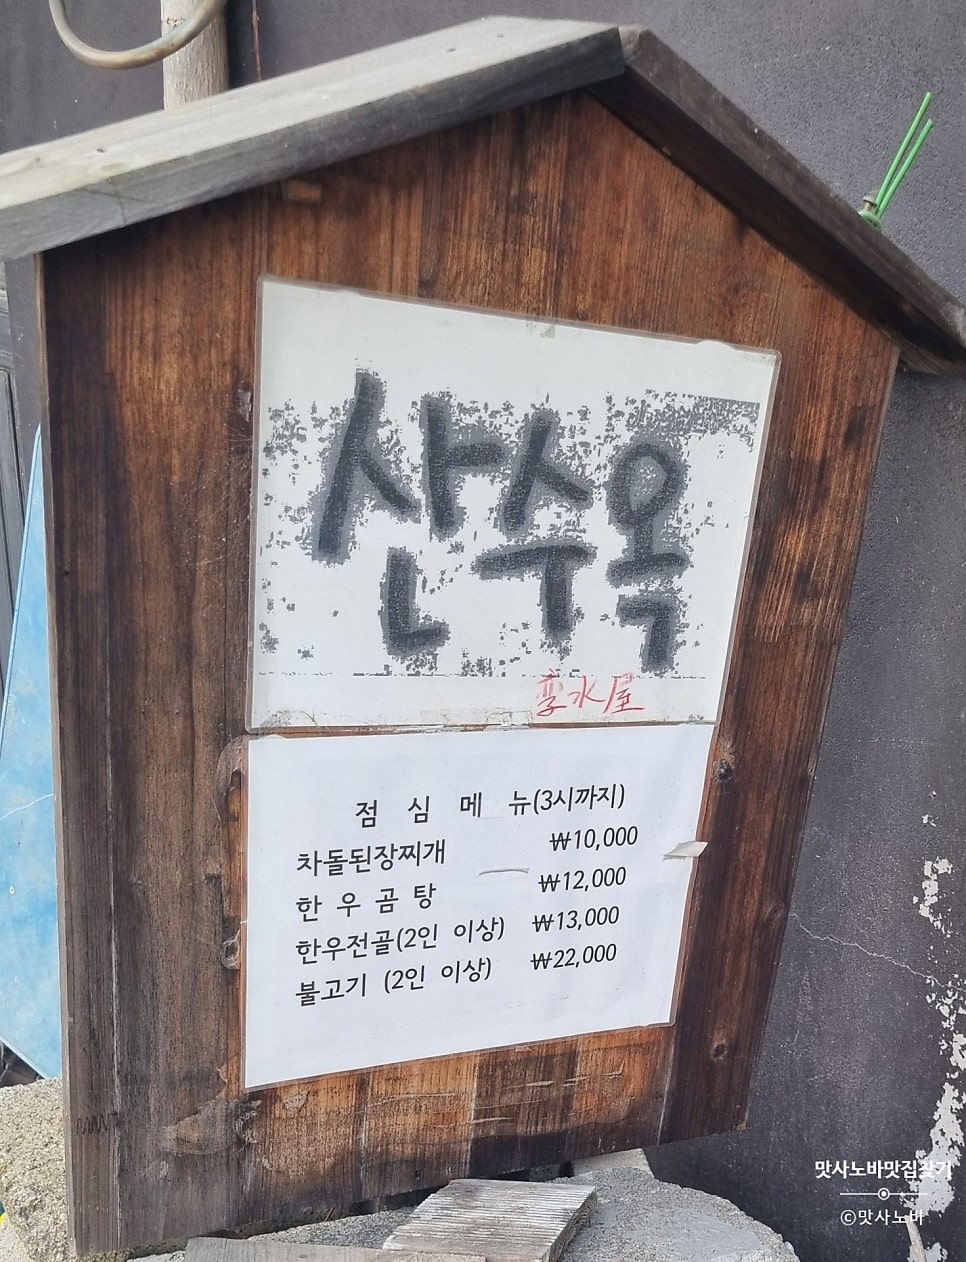 산수옥
水屋
점 심 메 뉴(3시까지)
차돌된장찌개 ₩10,000
한 우 곰 탕 ₩12,000
한우전골(2인 이상) ₩13,000
불고기 (2인 이상) ₩22,000
맛사노바맛집찾기
©맛사노바